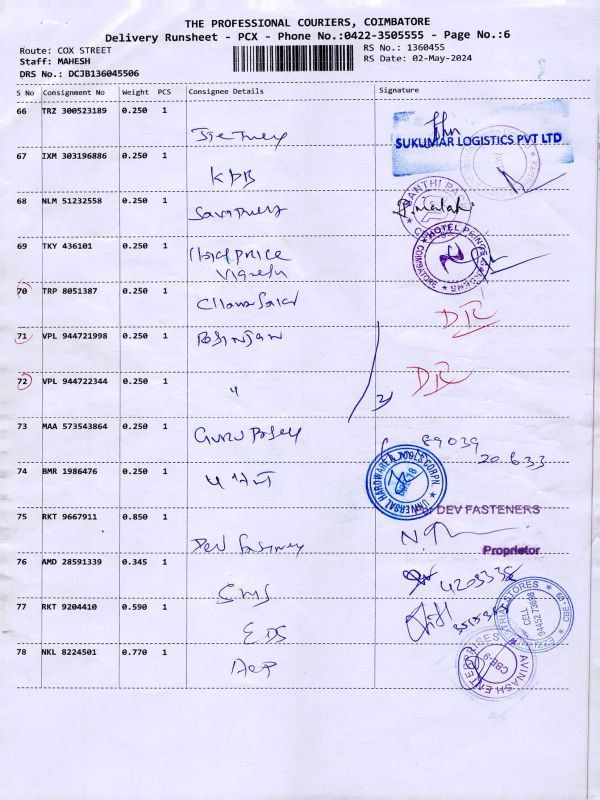 THE PROFESSIONAL COURIERS, COIMBATORE
Delivery Runsheet - PCX - Phone No.:0422-3505555 - Page No.:6
Route: COX STREET
RS No.: 1360455
Staff: MAHESH
RS Date: 02-May-2024
DRS No.: DCJB136045506
S No Consignment No Weight PCS Consignee Details Signature
66 TRZ 300523189 0.250 1
SUKUMAR LOGISTICS PVT LTD
67 IXM 303196886 0.250 1
KPB
68 NLM 51232558 0.250 1
69 TKY 436101 0.250 1
HOTEL PRINCE GARDENS
COIMBATORE
70 TRP 8051387 0.250 1
71 VPL 944721998 0.250 1
72 VPL 944722344 0.250 1
"
73 MAA 573543864 0.250 1
Guru
89039
20633
74 BMR 1986476 0.250 1
UNIVERSAL HARDWARE & TOOLS CORPN.
75 RKT 9667911 0.850 1
Dev Fastners
For DEV FASTENERS
Proprietor
76 AMD 28591339 0.345 1
SMS
77 RKT 9204410 0.590 1
EDS
STORES
CELL
78 NKL 8224501 0.770 1
AEP
AVINASH ENTERPRISES
CBE-9